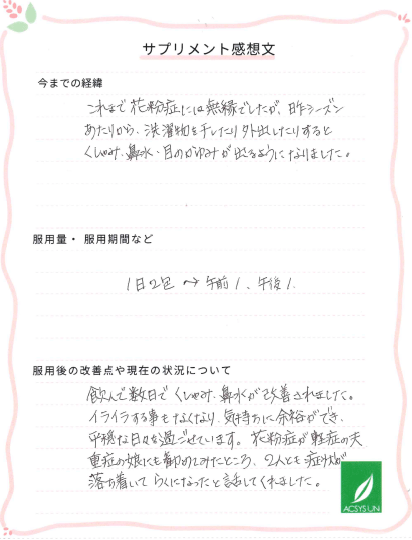 サプリメント感想文
今までの経緯
これまで花粉症には無縁でしたが、昨シーズン
あたりから、洗濯物を干したり外出したりすると
くしゃみ、鼻水、目のかゆみが出るようになりました。
服用量・服用期間など
1日2包 → 午前1、午後1.
服用後の改善点や現在の状況について
飲んで数日でくしゃみ、鼻水が改善されました。
イライラする事もなくなり、気持ちに余裕ができ、
平穏な日々を過ごせています。花粉症が軽症の夫
重症の娘にも勧めてみたところ、2人とも症状が
落ち着いてらくになったと話してくれました。
ACSYS UN